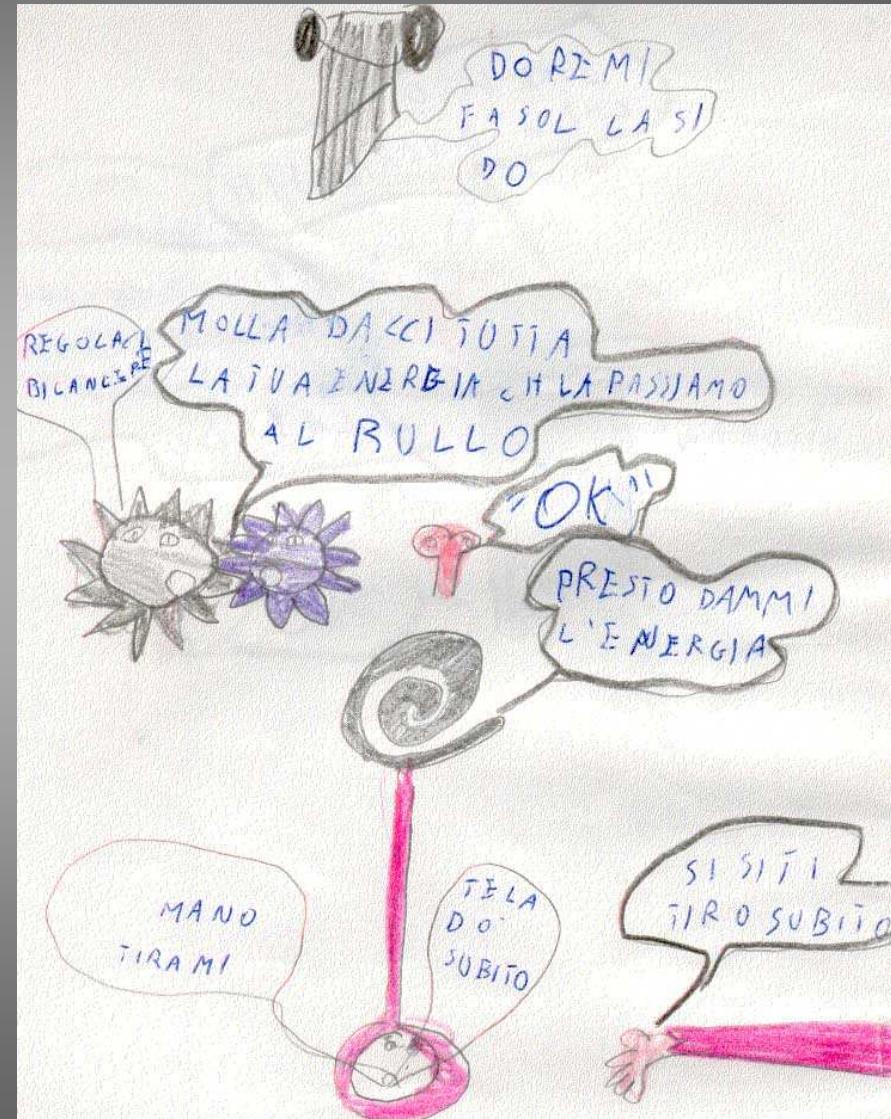 DO RE MI
FA SOL LA SI
DO
REGOLACI
BILANCERE
MOLLA DACCI TUTTA
LA TUA ENERGIA CH LA PASSIAMO
AL RULLO
"OK"
PRESTO DAMMI
L'ENERGIA
MANO
TIRAMI
TE LA
DO'
SUBITO
SI SI TI
TIRO SUBITO